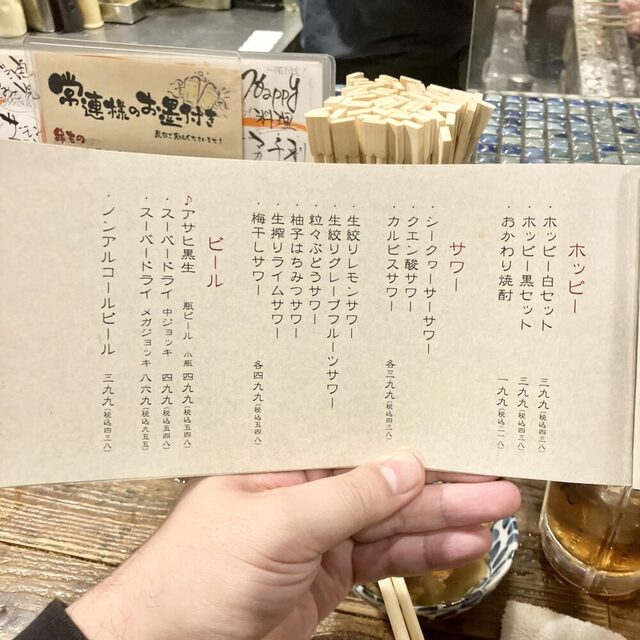 常連様のお墨付き
Happy
料理
ホッピー
・ホッピー白セット 三九九(税込四三八)
・ホッピー黒セット 三九九(税込四三八)
・おかわり焼酎 一九九(税込二一八)
サワー
・シークヮーサーサワー
・クエン酸サワー
・カルピスサワー 各三九九(税込四三八)
・生絞りレモンサワー
・生絞りグレープフルーツサワー
・粒々ぶどうサワー
・柚子はちみつサワー
・生搾りライムサワー
・梅干しサワー 各四九九(税込五四八)
ビール
♪アサヒ黒生 瓶ビール 小瓶 四九九(税込五四八)
・スーパードライ 中ジョッキ 四九九(税込五四八)
・スーパードライ メガジョッキ 八六九(税込九五五)
・ノンアルコールビール 三九九(税込四三八)